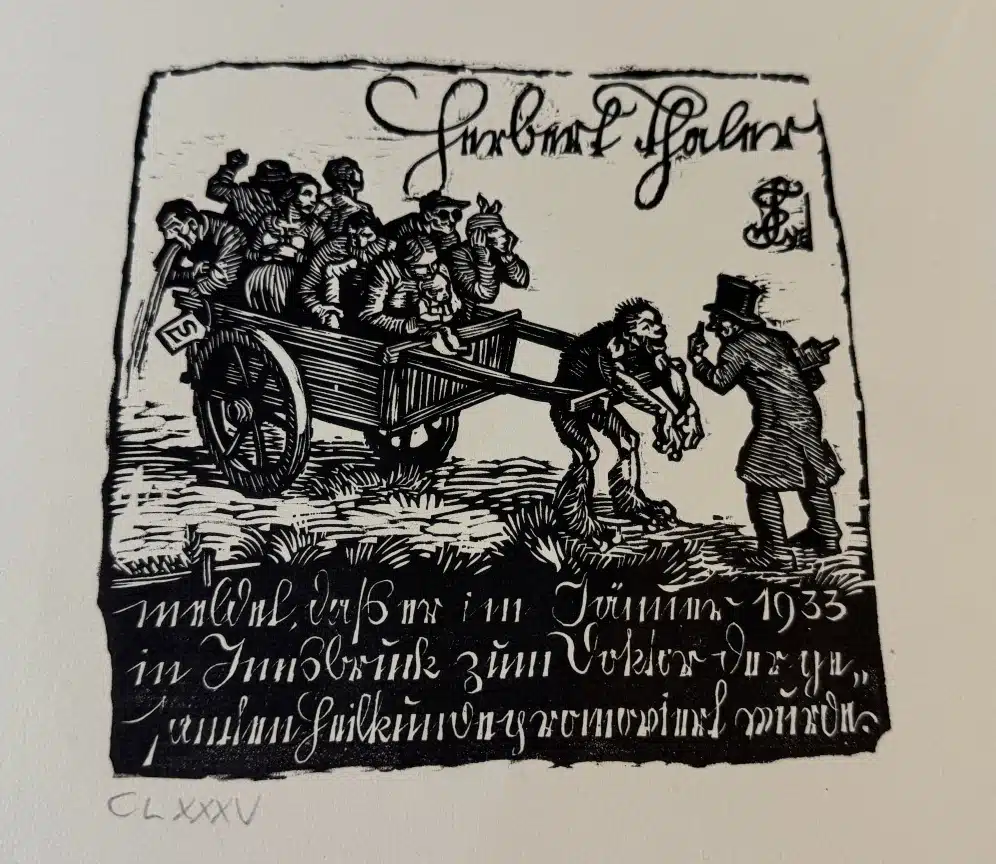 Herbert Thaler
meldet, daß er im Jänner 1933
in Innsbruck zum Doktor der ge„
samten Heilkunde promoviert wurde.
CLXXXV